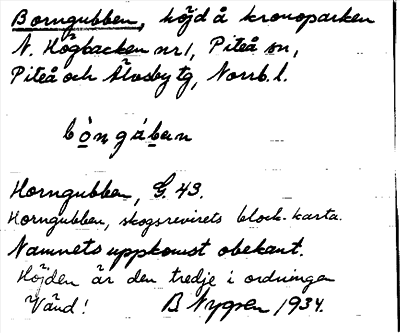 Borngubben, höjd å kronoparken
N. Högbacken nr 1, Piteå sn,
Piteå och Älvsby tg, Norrb. l.
bòngában
Horngubben, G. 43.
Horngubben, skogsrevirets block-karta.
Namnets uppkomst obekant.
Höjden är den tredje i ordningen
Vänd! B Nygren 1934.